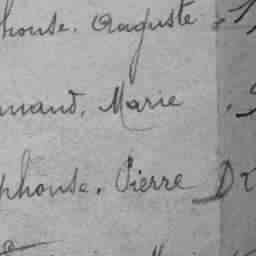 house. Auguste
mand, Marie
phonse, Pierre